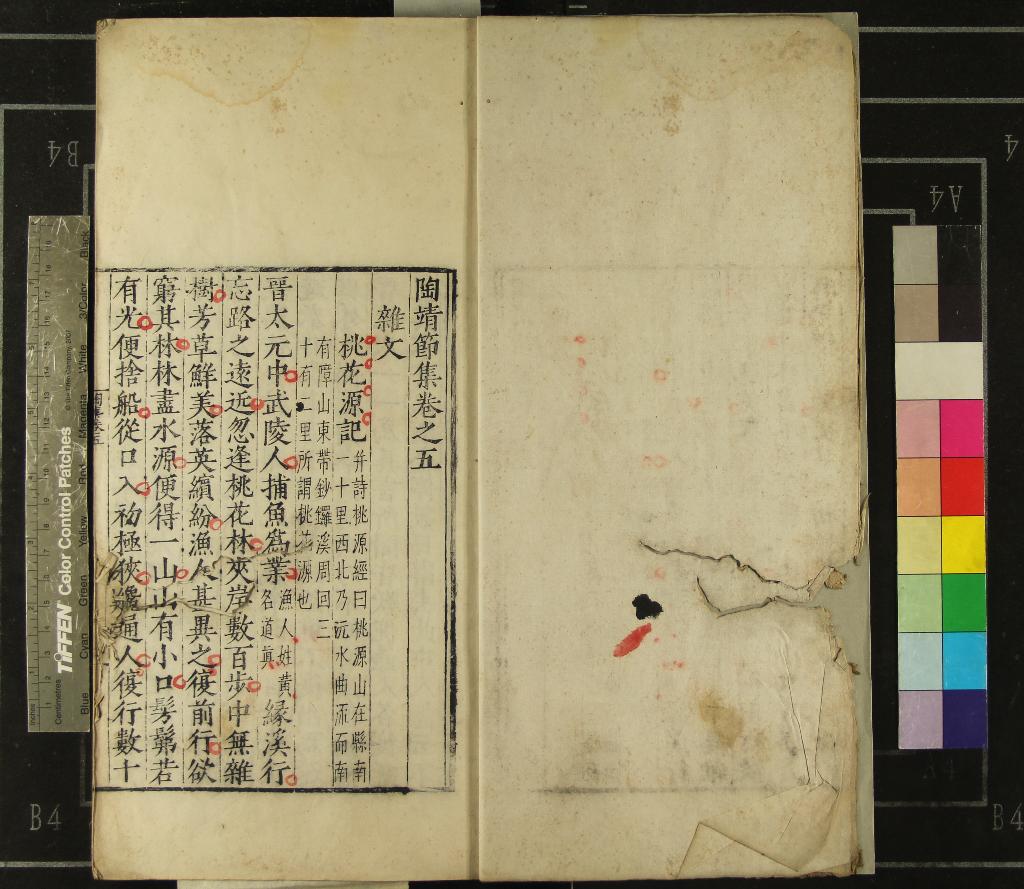 陶靖節集卷之五
雜文
桃花源記
并詩桃源經曰桃源山在縣南
一十里西北乃沅水曲流而南
有障山東帶鈔鑼溪周回三
十有二里所謂桃花源也
晉太元中武陵人捕魚爲業
漁人姓黃
名道真
緣溪行
忘路之遠近忽逢桃花林夾岸數百步中無雜
樹芳草鮮美落英繽紛漁人甚異之復前行欲
窮其林林盡水源便得一山山有小口髣髴若
有光便捨船從口入初極狹纔通人復行數十
B4
A4
4
B4
B4
TIFFEN Color Control Patches
Blue
Cyan
Green
Yellow
Red
Magenta
White
3/Color
Black
Inches
Centimetres